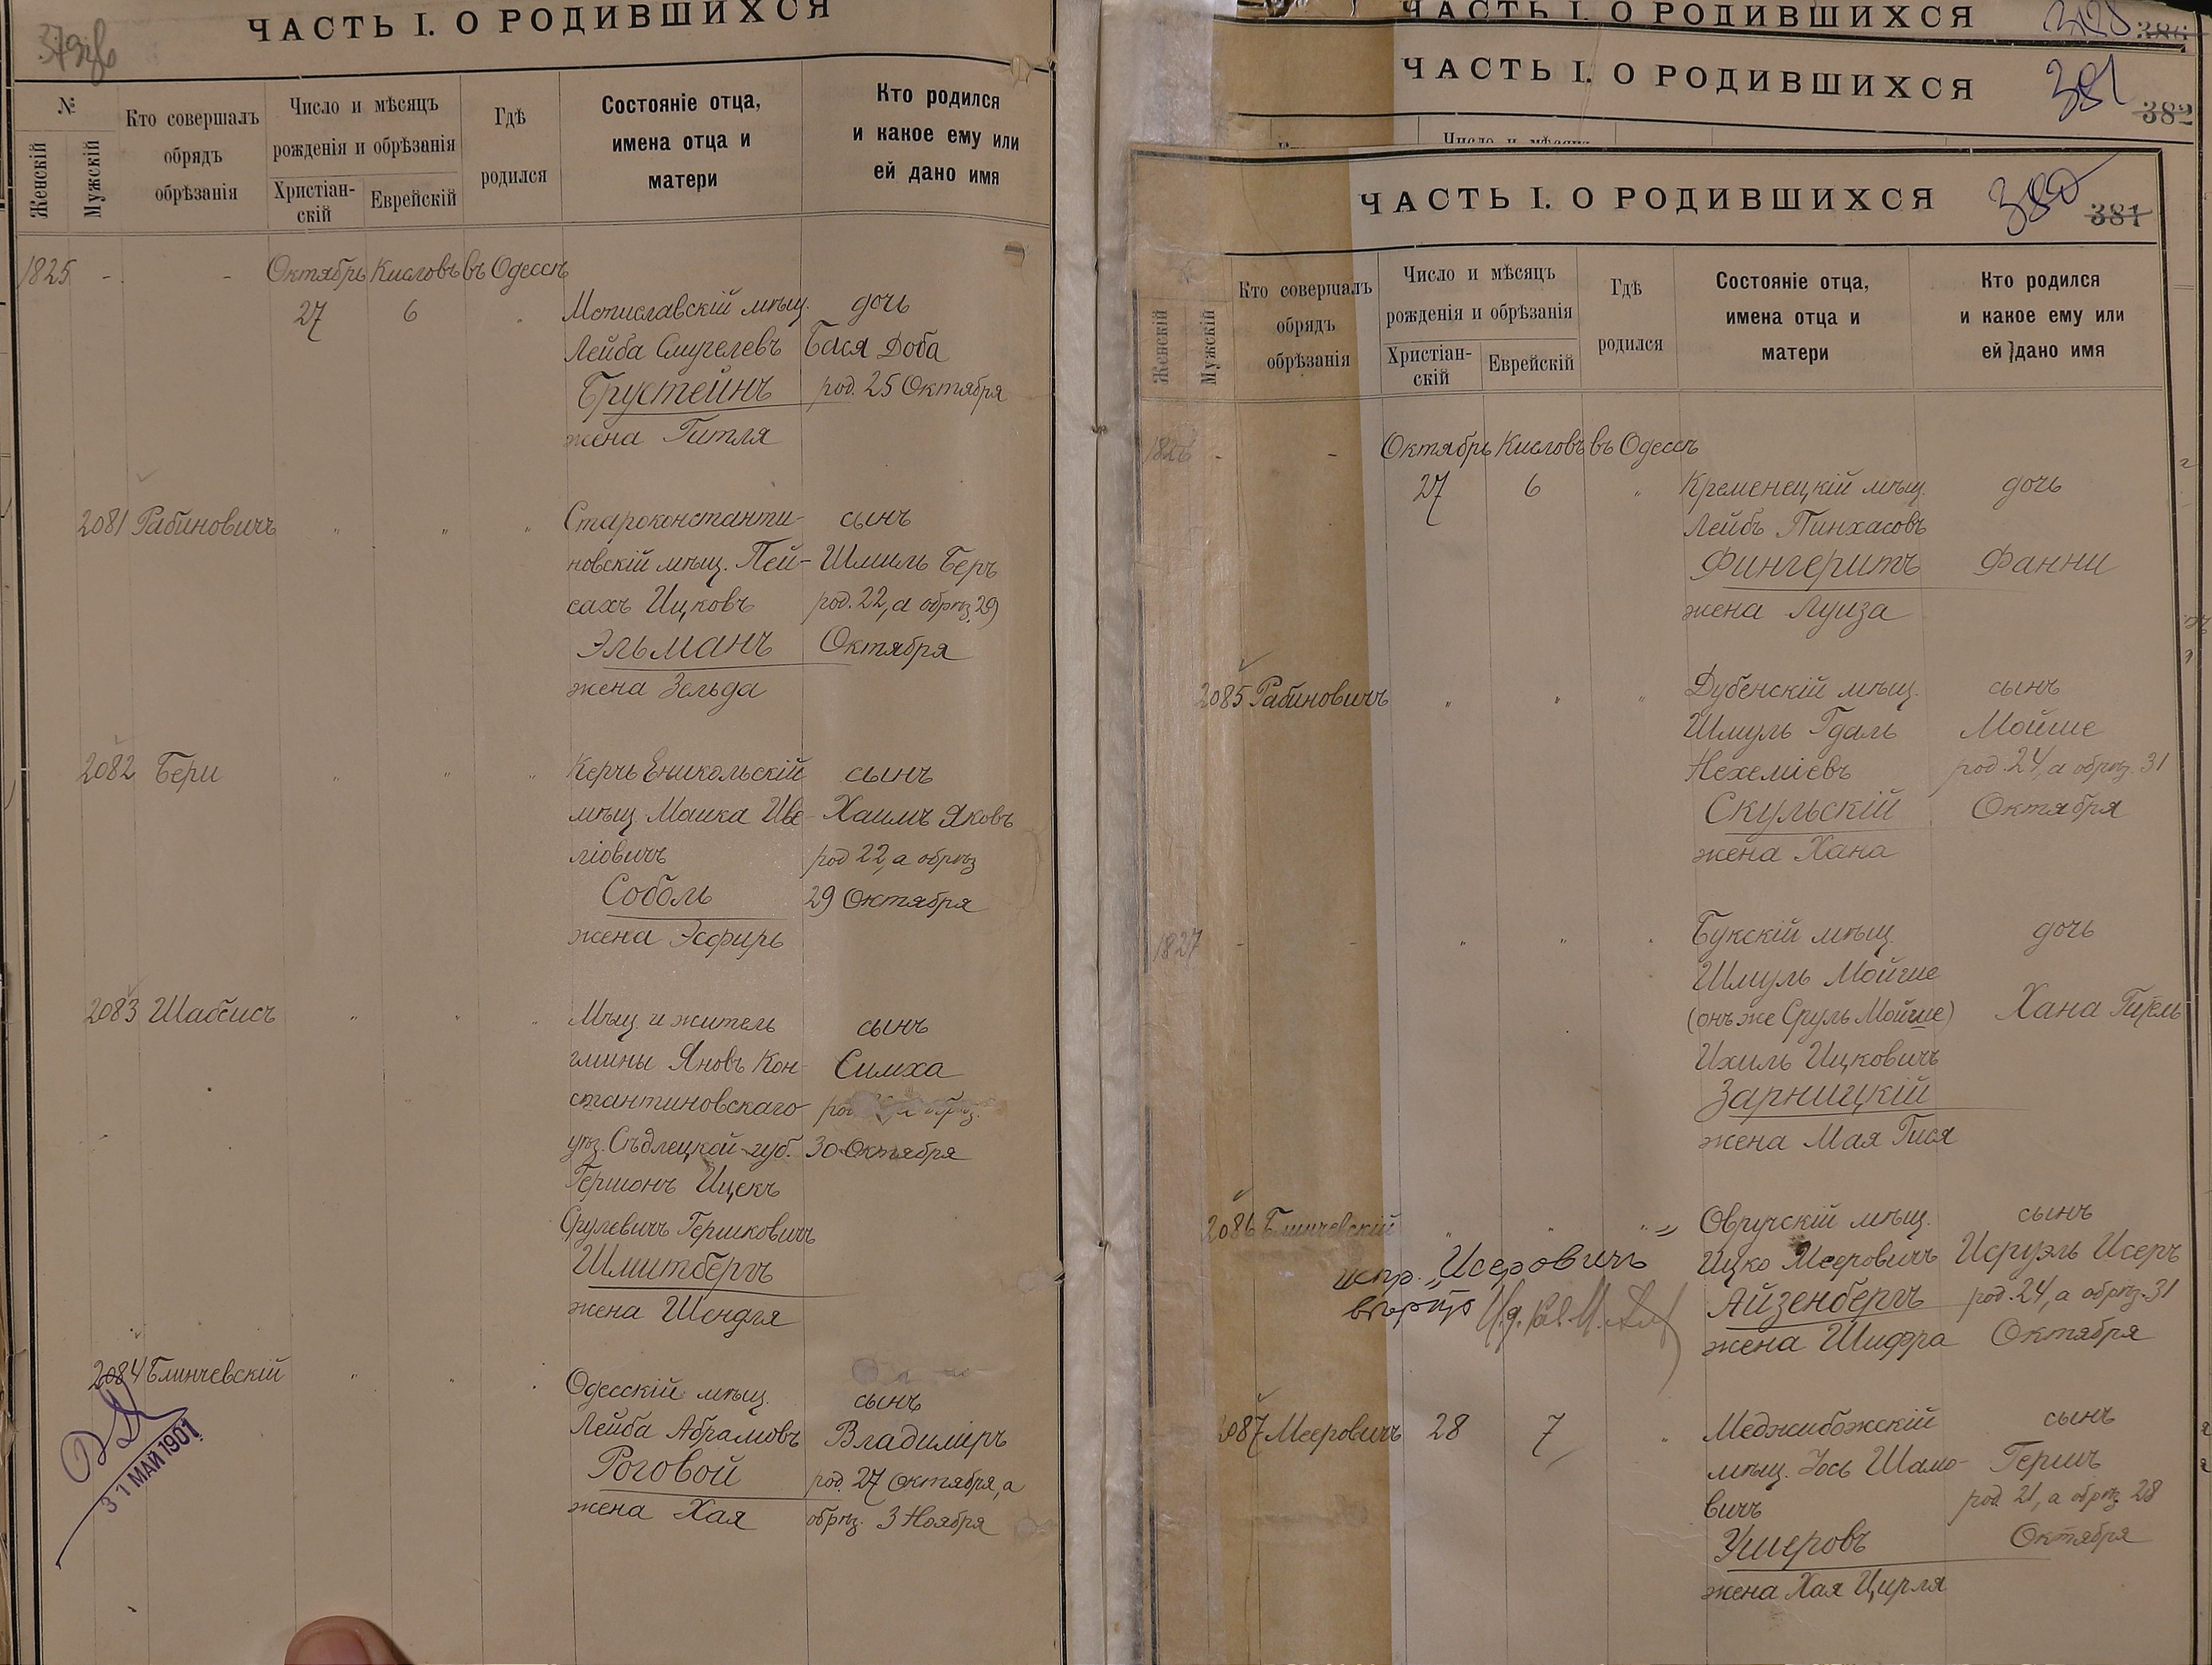 379 об
ЧАСТЬ I. О РОДИВШИХСЯ
№
Женскій
Мужскій
Кто совершалъ
обрядъ
обрѣзанія
Число и мѣсяцъ
рожденія и обрѣзанія
Христіан-
скій
Еврейскій
Гдѣ
родился
Состояніе отца,
имена отца и
матери
Кто родился
и какое ему или
ей дано имя
1825 - - Октябрь Кисловъ въ Одессѣ
27 6 Мстиславскій мѣщ. дочь
Лейба Смуелевъ Бася Доба
Брустейнъ род. 25 Октября
жена Гитля
2081 Рабиновичъ " " " Староконстанти- сынъ
новскій мѣщ. Пей- Шмиль Беръ
сахъ Ицковъ род. 22, а обрѣз. 29
Эльманъ Октября
жена Зельда
2082 Бери " " " Керчь Еникольскій сынъ
мѣщ. Мошка Иве- Хаимъ Яковъ
ліовичъ род 22, а обрѣз
Соболь 29 Октября
жена Эсфирь
2083 Шабсисъ " " " Мѣщ. и житель сынъ
гмины Яновъ Кон- Симха
стантиновскаго род а обрѣз.
уѣз. Сѣдлецкой губ. 30 Октября
Гершонъ Ицекъ
Срулевичъ Гершковичъ
Шмитбергъ
жена Шендля
2084 Блинчевскій " " Одесскій мѣщ. сынъ
Лейба Абрамовъ Владиміръ
Роговой род. 27 Октября, а
жена Хая обрѣз. 3 Ноября
31 МАЙ 1901
ЧАСТЬ I. О РОДИВШИХСЯ
386
ЧАСТЬ I. О РОДИВШИХСЯ
381
382
Число и мѣсяцъ
ЧАСТЬ I. О РОДИВШИХСЯ
380
381
Женскій
Мужскій
Кто совершалъ
обрядъ
обрѣзанія
Число и мѣсяцъ
рожденія и обрѣзанія
Христіан-
скій
Еврейскій
Гдѣ
родился
Состояніе отца,
имена отца и
матери
Кто родился
и какое ему или
ей дано имя
1826 - - Октябрь Кисловъ въ Одессѣ
27 6 " Кременецкій мѣщ. дочь
Лейбъ Пинхасовъ
Фингеритъ Фанни
жена Луиза
2085 Рабиновичъ " " " Дубенскій мѣщ. сынъ
Шмуль Гдаль Мойше
Нехеміевъ род. 24, а обрѣз. 31
Скульскій Октября
жена Хана
1827 - - " " " Букскій мѣщ. дочь
Шмуль Мойше
(онъ же Сруль Мойше) Хана
Ихиль Ицковичъ
Зарницкій
жена Мая Гися
2086 Блинчевскій " " " Овручскій мѣщ. сынъ
Ицко Исеровичъ Исруэль Исеръ
испр. „Исеровичъ"
вѣрно
Айзенбергъ род. 24, а обрѣз. 31
жена Шифра Октября
2087 Мееровичъ 28 7 " Меджибожскій сынъ
мѣщ. Іось Шамо- Гершъ
вичъ род. 21, а обрѣз 28
Ушеровъ Октября
жена Хая Цирля